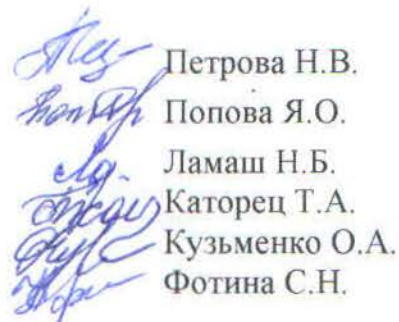 Петрова Н.В.
Попова Я.О.
Ламаш Н.Б.
Каторец Т.А.
Кузьменко О.А.
Фотина С.Н.